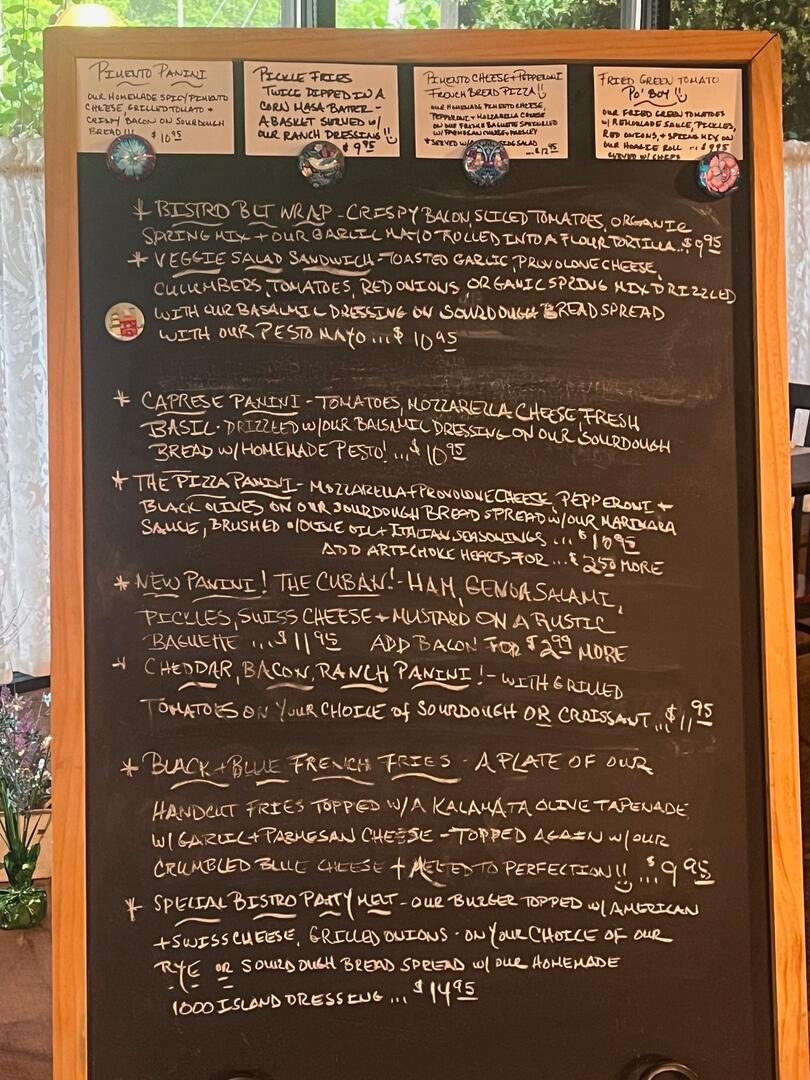 PIMENTO PANINI
OUR HOMEMADE SPICY PIMENTO
CHEESE, GRILLED TOMATO +
CRISPY BACON ON SOURDOUGH
BREAD !!! $10.95
PICKLE FRIES
TWICE DIPPED IN A
CORN MASA BATTER -
A BASKET SERVED W/
OUR RANCH DRESSING!!
$9.95
PIMENTO CHEESE + PEPPERONI
FRENCH BREAD PIZZA!!
OUR HOMEMADE PIMENTO CHEESE,
PEPPERONI, + MOZZARELLA CHEESE
ON OUR FRENCH BAGUETTE SPRINKLED
W/ PARMESAN CHEESE + PARSLEY
* SERVED W/ SIDE SALAD
...$12.95
FRIED GREEN TOMATO
PO' BOY!!
OUR FRIED GREEN TOMATOES
W/ REMOULADE SAUCE, PICKLES,
RED ONIONS, + SPRING MIX ON
OUR HOAGIE ROLL ...$9.95
SERVED W/ CHIPS
* BISTRO BLT WRAP - CRISPY BACON, SLICED TOMATOES, ORGANIC
SPRING MIX + OUR GARLIC MAYO ROLLED INTO A FLOUR TORTILLA..$9.95
* VEGGIE SALAD SANDWICH - TOASTED GARLIC, PROVOLONE CHEESE,
CUCUMBERS, TOMATOES, RED ONIONS ORGANIC SPRING MIX DRIZZLED
WITH OUR BASALMIC DRESSING ON SOURDOUGH BREAD SPREAD
WITH OUR PESTO MAYO ... $10.95
* CAPRESE PANINI - TOMATOES, MOZZARELLA CHEESE, FRESH
BASIL - DRIZZLED W/OUR BALSAMIC DRESSING ON OUR SOURDOUGH
BREAD W/HOMEMADE PESTO! ...$10.95
* THE PIZZA PANINI - MOZZARELLA + PROVOLONE CHEESE, PEPPERONI +
BLACK OLIVES ON OUR SOURDOUGH BREAD SPREAD W/OUR MARINARA
SAUCE, BRUSHED W/OLIVE OIL + ITALIAN SEASONINGS ...$10.95
ADD ARTICHOKE HEARTS FOR ...$2.50 MORE
* NEW PANINI! THE CUBAN! - HAM, GENOA SALAMI,
PICKLES, SWISS CHEESE + MUSTARD ON A RUSTIC
BAGUETTE ...$11.95 ADD BACON FOR $2.99 MORE
* CHEDDAR, BACON, RANCH PANINI! - WITH GRILLED
TOMATOES ON YOUR CHOICE of SOURDOUGH OR CROISSANT...$11.95
* BLACK + BLUE FRENCH FRIES - A PLATE OF OUR
HANDCUT FRIES TOPPED W/A KALAMATA OLIVE TAPENADE
W/ GARLIC + PARMESAN CHEESE - TOPPED AGAIN W/OUR
CRUMBLED BLUE CHEESE + MELTED TO PERFECTION!! ...$9.95
* SPECIAL BISTRO PATTY MELT - OUR BURGER TOPPED W/ AMERICAN
+ SWISS CHEESE, GRILLED ONIONS - ON YOUR CHOICE OF OUR
RYE OR SOURDOUGH BREAD SPREAD W/ OUR HOMEMADE
1000 ISLAND DRESSING ... $14.95